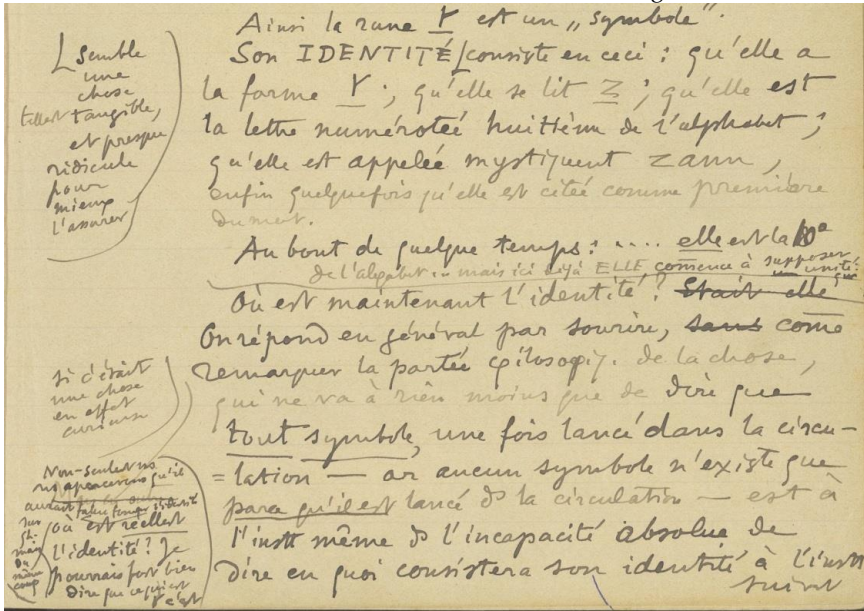 Ainsi la rune Y est un „symbole".
Son IDENTITÉ consiste en ceci : qu'elle a
la forme Y ; qu'elle se lit Z ; qu'elle est
la lettre numérotée huitième de l'alphabet ;
qu'elle est appelée mystiquemt zann ,
enfin quelquefois qu'elle est citée comme première
du mot.
Au bout de quelque temps : .... elle est la 10e
de l'alphabet .. mais ici déjà ELLE commence à supposer
unité
Où est maintenant l'identité ? Etait elle
On répond en général par sourire, sans come
remarquer la portée de la chose,
qui ne va à rien moins que de dire que
tout symbole, une fois lancé dans la circu-
= lation — or aucun symbole n'existe que
parce qu'il est lancé ds la circulation — est à
l'instt même ds l'incapacité absolue de
dire en quoi consistera son identité à l'instt
suivt
semble
une
chose
tellemt tangible,
et presque
ridicule
pour
mieux
l'assurer
si c'était
une chose
en effet
curieuse
Non-seulemt ns
où est réellemt
l'identité ? Je
pourrais fort bien
dire que ce qui est